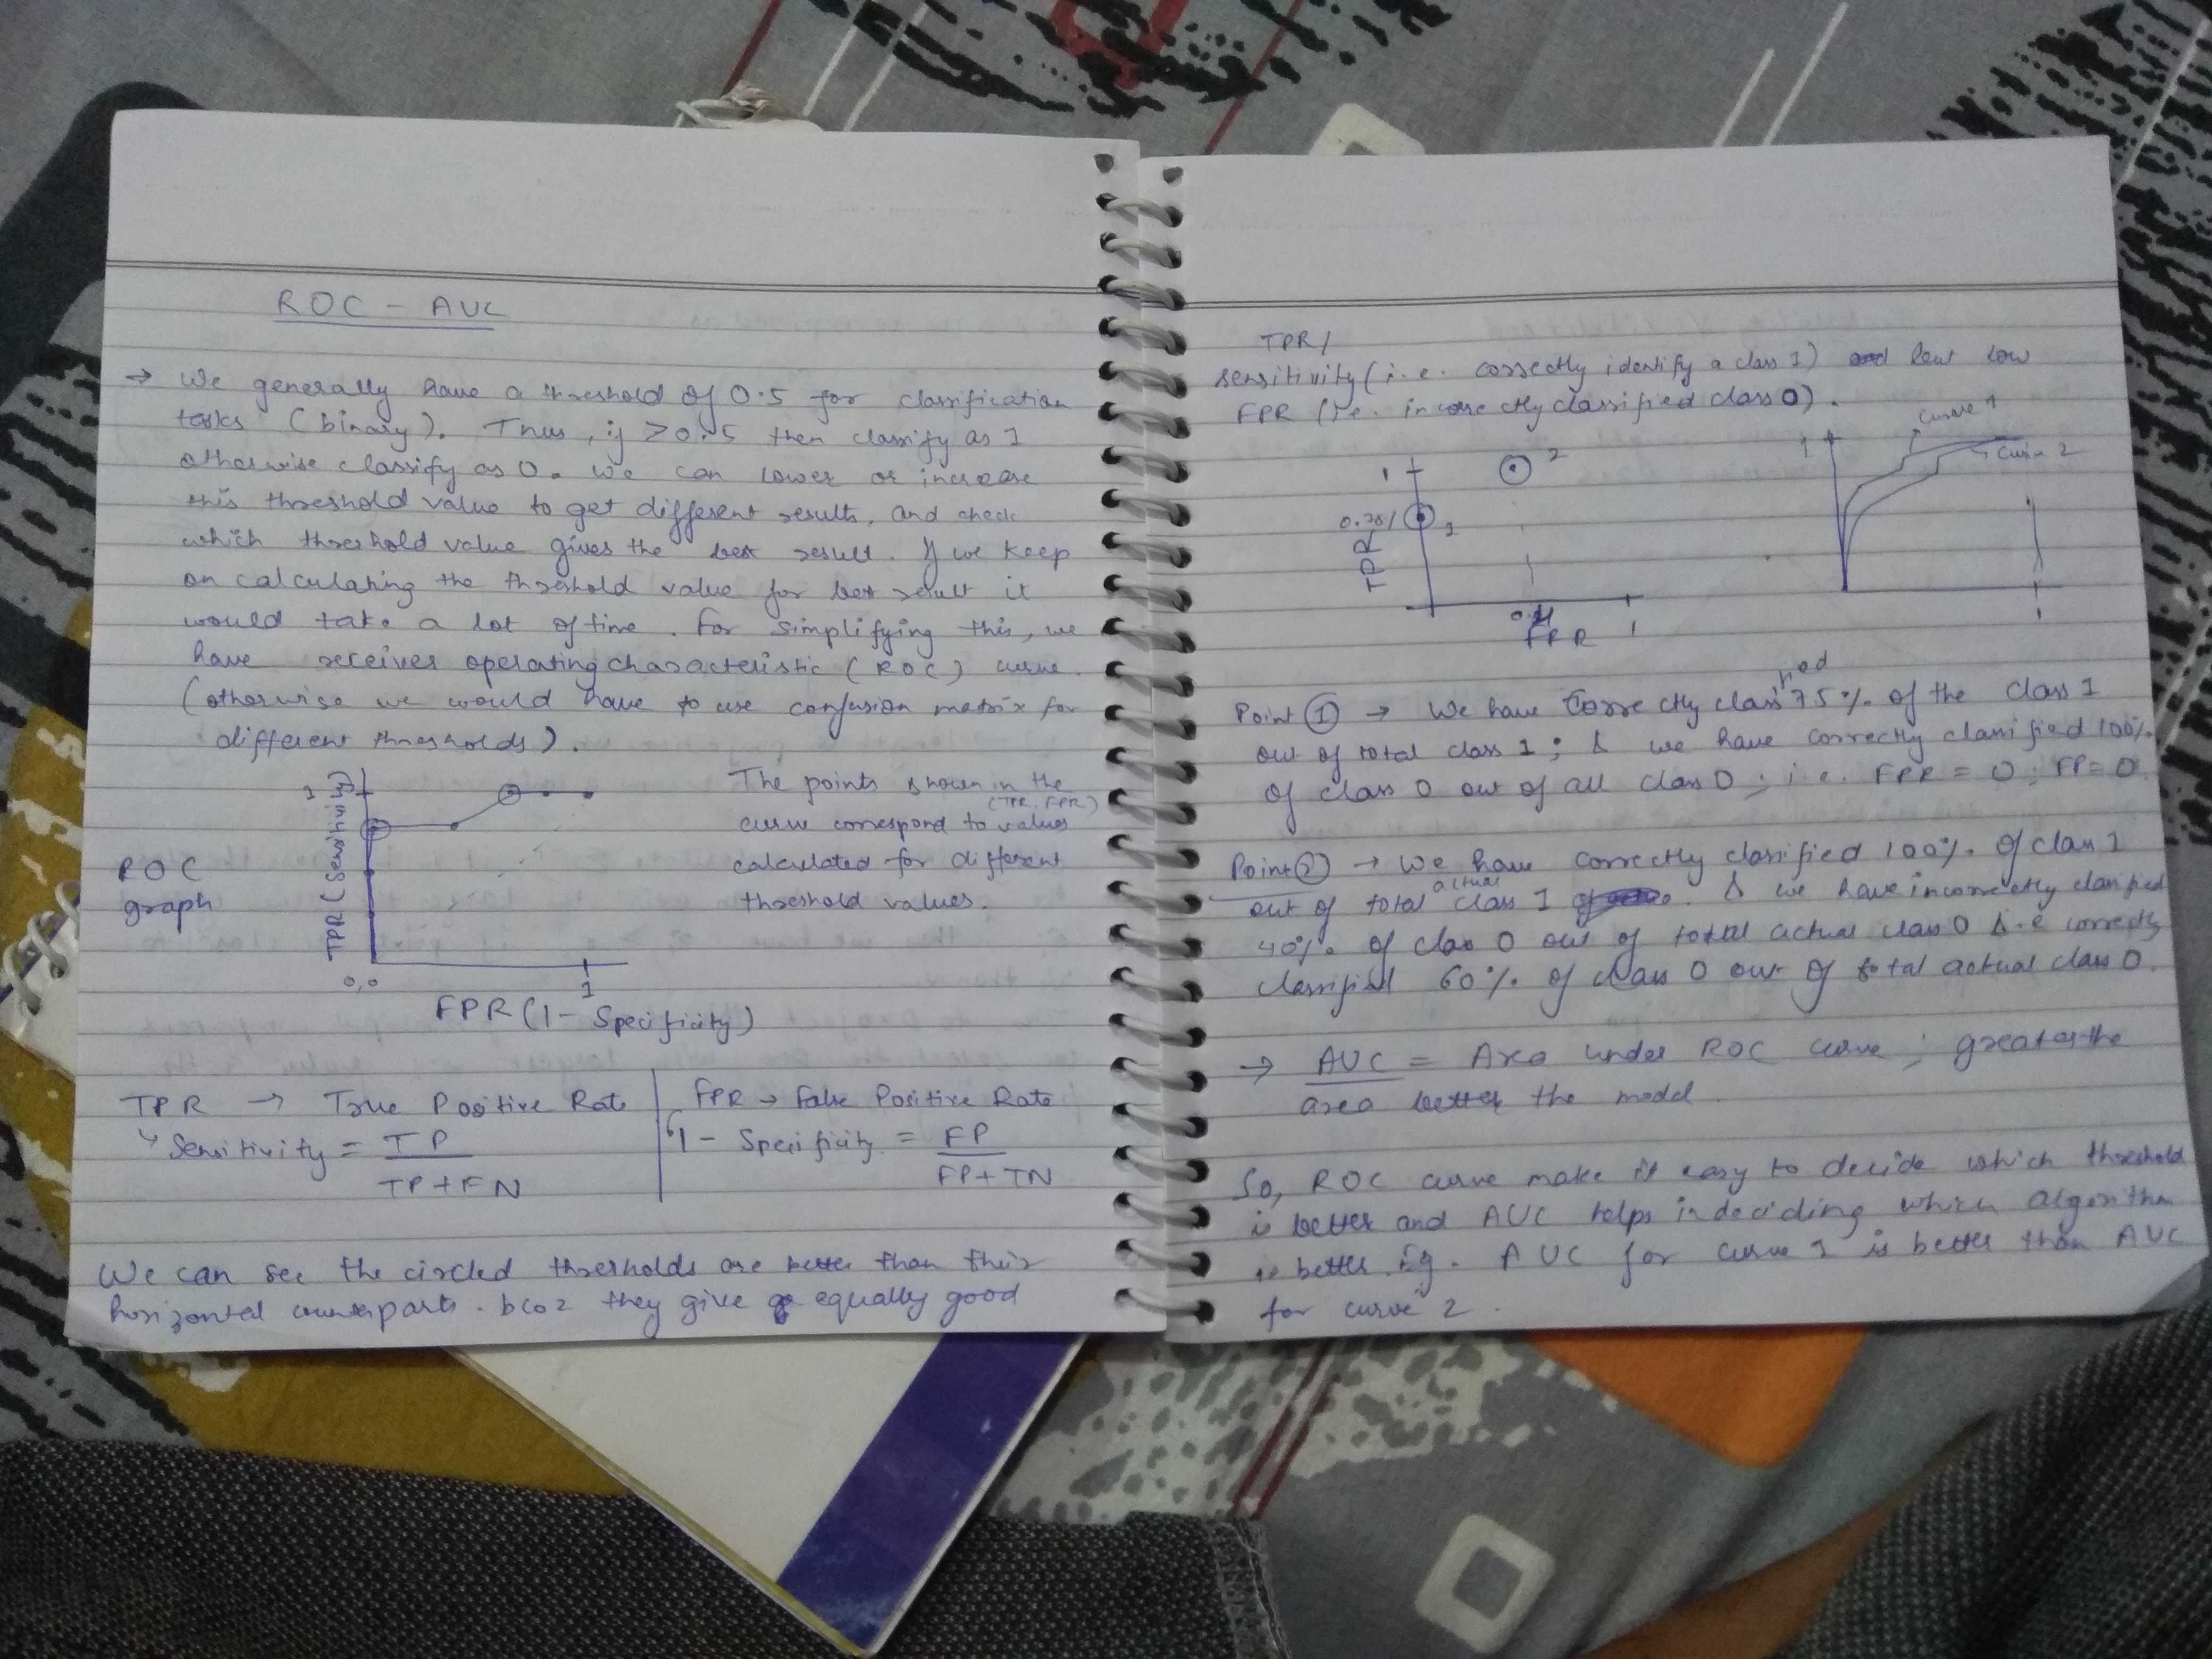 ROC - AUC
→ We generally have a threshold of 0.5 for classification
tasks (binary). Thus, if >0.5 then classify as 1
otherwise classify as 0. We can lower or increase
this threshold value to get different results, and check
which threshold value gives the best result. If we keep
on calculating the threshold value for best result it
would take a lot of time. For simplifying this, we
have receiver operating characteristic (ROC) curve.
(otherwise we would have to use confusion matrix for
different thresholds).
ROC
graph
TPR (Sensitivity)
1
0,0
1
FPR (1 - Specificity)
The points shown in the
(TPR, FPR)
curve correspond to values
calculated for different
threshold values.
TPR → True Positive Rate
↳ Sensitivity = TP
TP+FN
FPR → False Positive Rate
1 - Specificity = FP
FP+TN
We can see the circled thresholds are better than their
horizontal counterparts. bcoz they give equally good
TPR/
sensitivity (i.e. correctly identify a class 1) low
FPR (i.e. incorrectly classified class 0).
1
2
1
TPR
FPR
1
1
curve 1
curve 2
1
Point ① → We have correctly classified 75% of the class 1
out of total class 1; & we have correctly classified 100%
of class 0 out of all class 0; i.e. FPR = 0; FP=0
Point ② → We have correctly classified 100% of class 1
out of total actual class 1. & we have incorrectly classified
40% of class 0 out of total actual class 0 i.e correctly
classified 60% of class 0 out of total actual class 0.
→ AUC = Area under ROC curve; greater the
area better the model.
So, ROC curve make it easy to decide which threshold
is better and AUC helps in deciding which algorithm
is better. Eg. AUC for curve 1 is better than AUC
for curve 2.